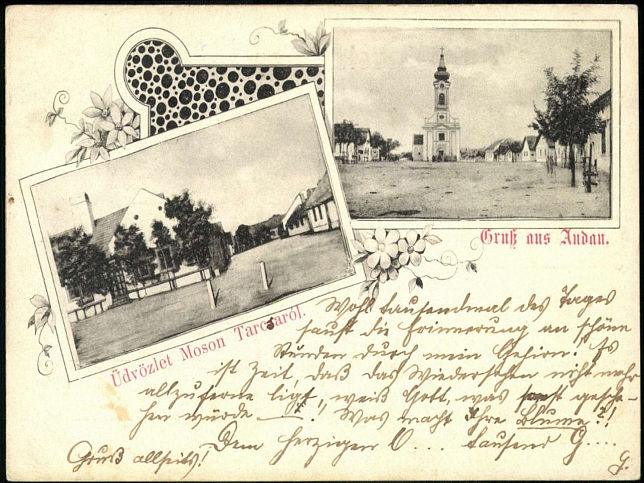 Gruß aus Andau.
Üdvözlet Moson Tarcsaról.
Wohl tausendmal des Tages
saust die Erinnerung an schöne
Stunden durch mein Gehirn! Es
ist Zeit, daß das Wiedersehen nicht mehr
allzuferne liegt, weiß Gott, was sonst gesche-
hen würde —! Was macht Ihre Blume?!
Dem herzigen O... tausend G....
Gruß allseits!
G.